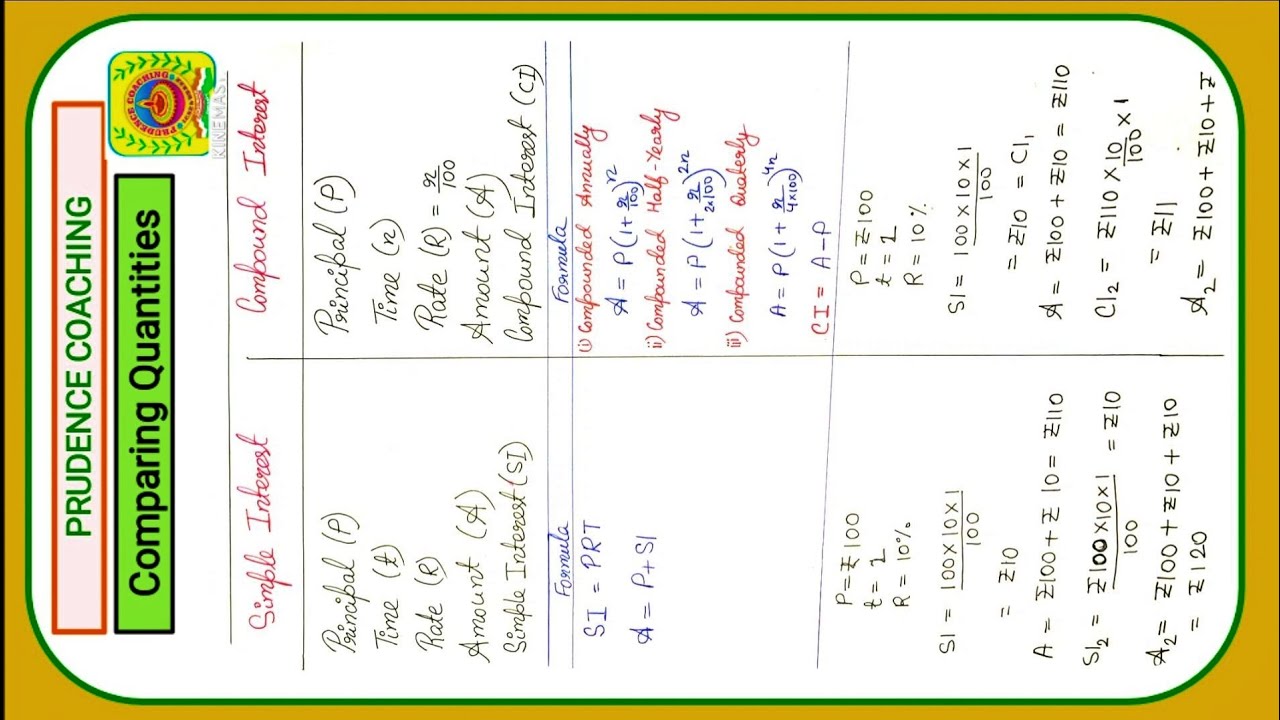 PRUDENCE COACHING
Comparing Quantities
PRUDENCE COACHING
KINEMAS
Simple Interest
Principal (P)
Time (t)
Rate (R)
Amount (A)
Simple Interest (SI)
Formula
SI = PRT
A = P+SI
P=₹100
t = 2
R = 10%
SI = 100×10×1/100
= ₹10
A = ₹100+₹10 = ₹110
SI₂ = ₹100×10×1/100 = ₹10
A₂ = ₹100+₹10+₹10
= ₹120
Compound Interest
Principal (P)
Time (n)
Rate (R) = r/100
Amount (A)
Compound Interest (CI)
Formula
(i) Compounded Annually
A = P(1+r/100)ⁿ
ii) Compounded Half-Yearly
A = P(1+r/2×100)²ⁿ
iii) Compounded Quaterly
A = P(1+r/4×100)⁴ⁿ
CI = A-P
P=₹100
t = 2
R = 10%
SI = 100×10×1/100
= ₹10 = CI₁
A = ₹100+₹10 = ₹110
CI₂ = ₹110×10/100×1
= ₹11
A₂ = ₹100+₹10+₹